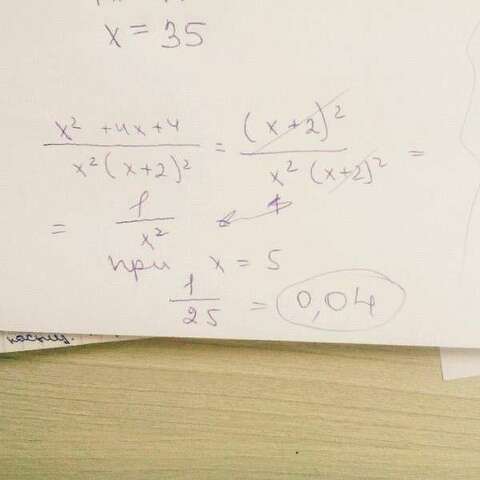 x = 35
x² + 4x + 4 / x²(x+2)² = (x+2)² / x²(x+2)² =
= 1 / x²
при x = 5
1 / 25 = 0,04